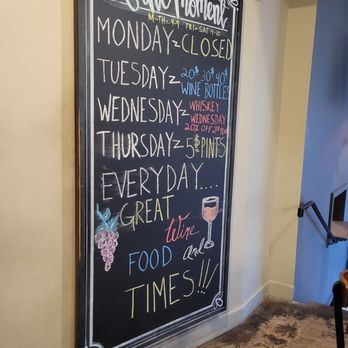 Moment
M-TH: 4-9 FRI-SAT 4-10
MONDAY~CLOSED
TUESDAY~20$ 30$ 40$
WINE BOTTLES
WEDNESDAY~WHISKEY
WEDNESDAY
20% OFF
THURSDAY~5$ PINTS
EVERYDAY....
GREAT
Wine,
FOOD and
TIMES!!!